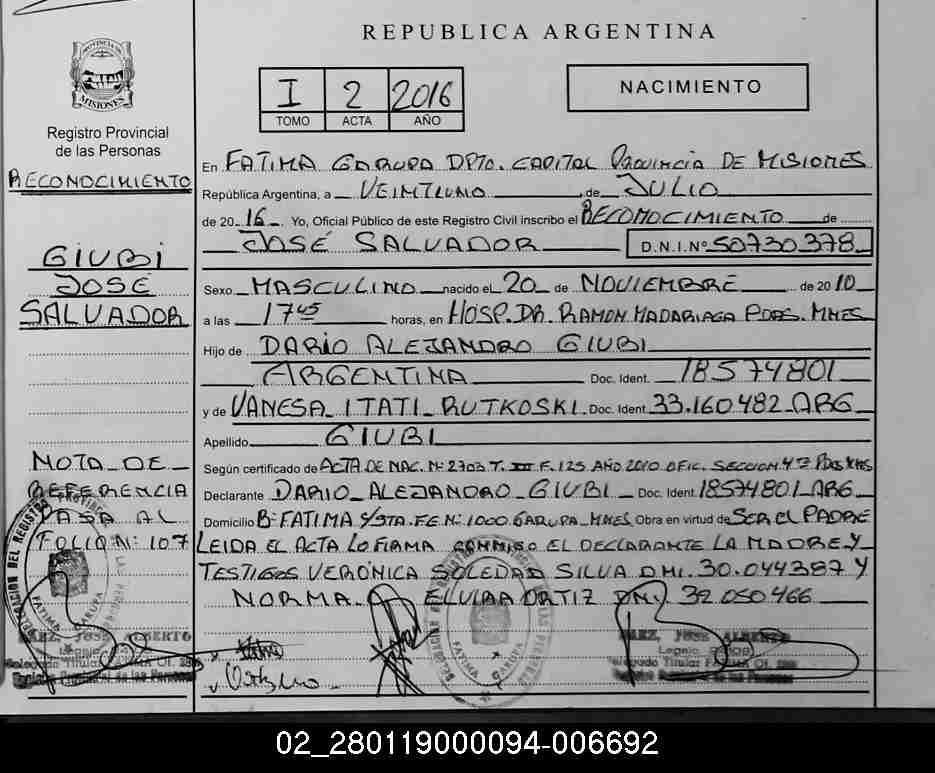 REPUBLICA ARGENTINA
PROVINCIA DE
MISIONES
Registro Provincial
de las Personas
I 2 2016
TOMO ACTA AÑO
NACIMIENTO
RECONOCIMIENTO
GIUBI
JOSÉ
SALVADOR
NOTA DE
REFERENCIA
PASA AL
FOLIO N: 107
En FATIMA GARUPA DPTO. CAPITAL PROVINCIA DE MISIONES
República Argentina, a VEINTIUNO de JULIO
de 2016. Yo, Oficial Público de este Registro Civil inscribo el RECONOCIMIENTO de
JOSÉ SALVADOR D.N.I.Nº 50730378
Sexo MASCULINO nacido el 20 de NOVIEMBRE de 2010
a las 17 45 horas, en HOSP. DR. RAMON MADARIAGA PDAS. MNES
Hijo de DARIO ALEJANDRO GIUBI
ARGENTINA Doc. Ident. 18574801
y de VANESA ITATI RUTKOSKI Doc. Ident 33.160482 ARG
Apellido GIUBI
Según certificado de ACTA DE NAC. Nº 2703 T. III F. 125 AÑO 2010 OFIC. SECCION 4ta PDAS MNES
Declarante DARIO ALEJANDRO GIUBI Doc. Ident. 18574801 ARG
Domicilio Bº FATIMA Y STA. FE Nº 1000 GARUPA MNES Obra en virtud de SER EL PADRE
LEIDA EL ACTA LO FIRMA CONMIGO EL DECLARANTE LA MADRE Y
TESTIGOS VERÓNICA SOLEDAD SILVA DNI. 30.044387 Y
NORMA ELVIRA ORTIZ DNI 32 050 466
JOSE ALBERTO
Legajo
Delegado Titular
Registro Provincial de las Personas
FATIMA GARUPA
JOSE ALBERTO
Legajo
Delegado Titular
Registro Provincial de las Personas
02_280119000094-006692